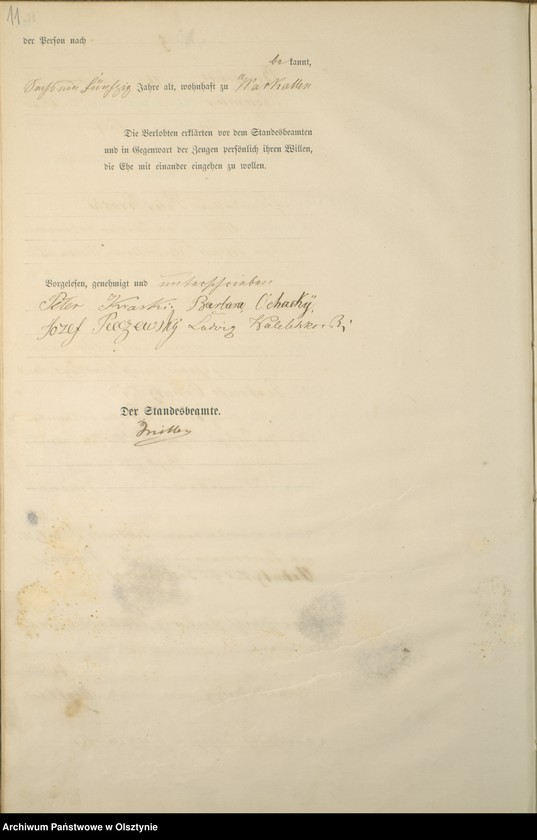 11.
der Person nach
be kannt,
Sechsundfünfzig Jahre alt, wohnhaft zu Warkallen
Die Verlobten erklärten vor dem Standesbeamten
und in Gegenwart der Zeugen persönlich ihren Willen,
die Ehe mit einander eingehen zu wollen.
Vorgelesen, genehmigt und unterschrieben
Peter Barbara
Jozef Ludwig
Der Standesbeamte.
Archiwum Państwowe w Olsztynie